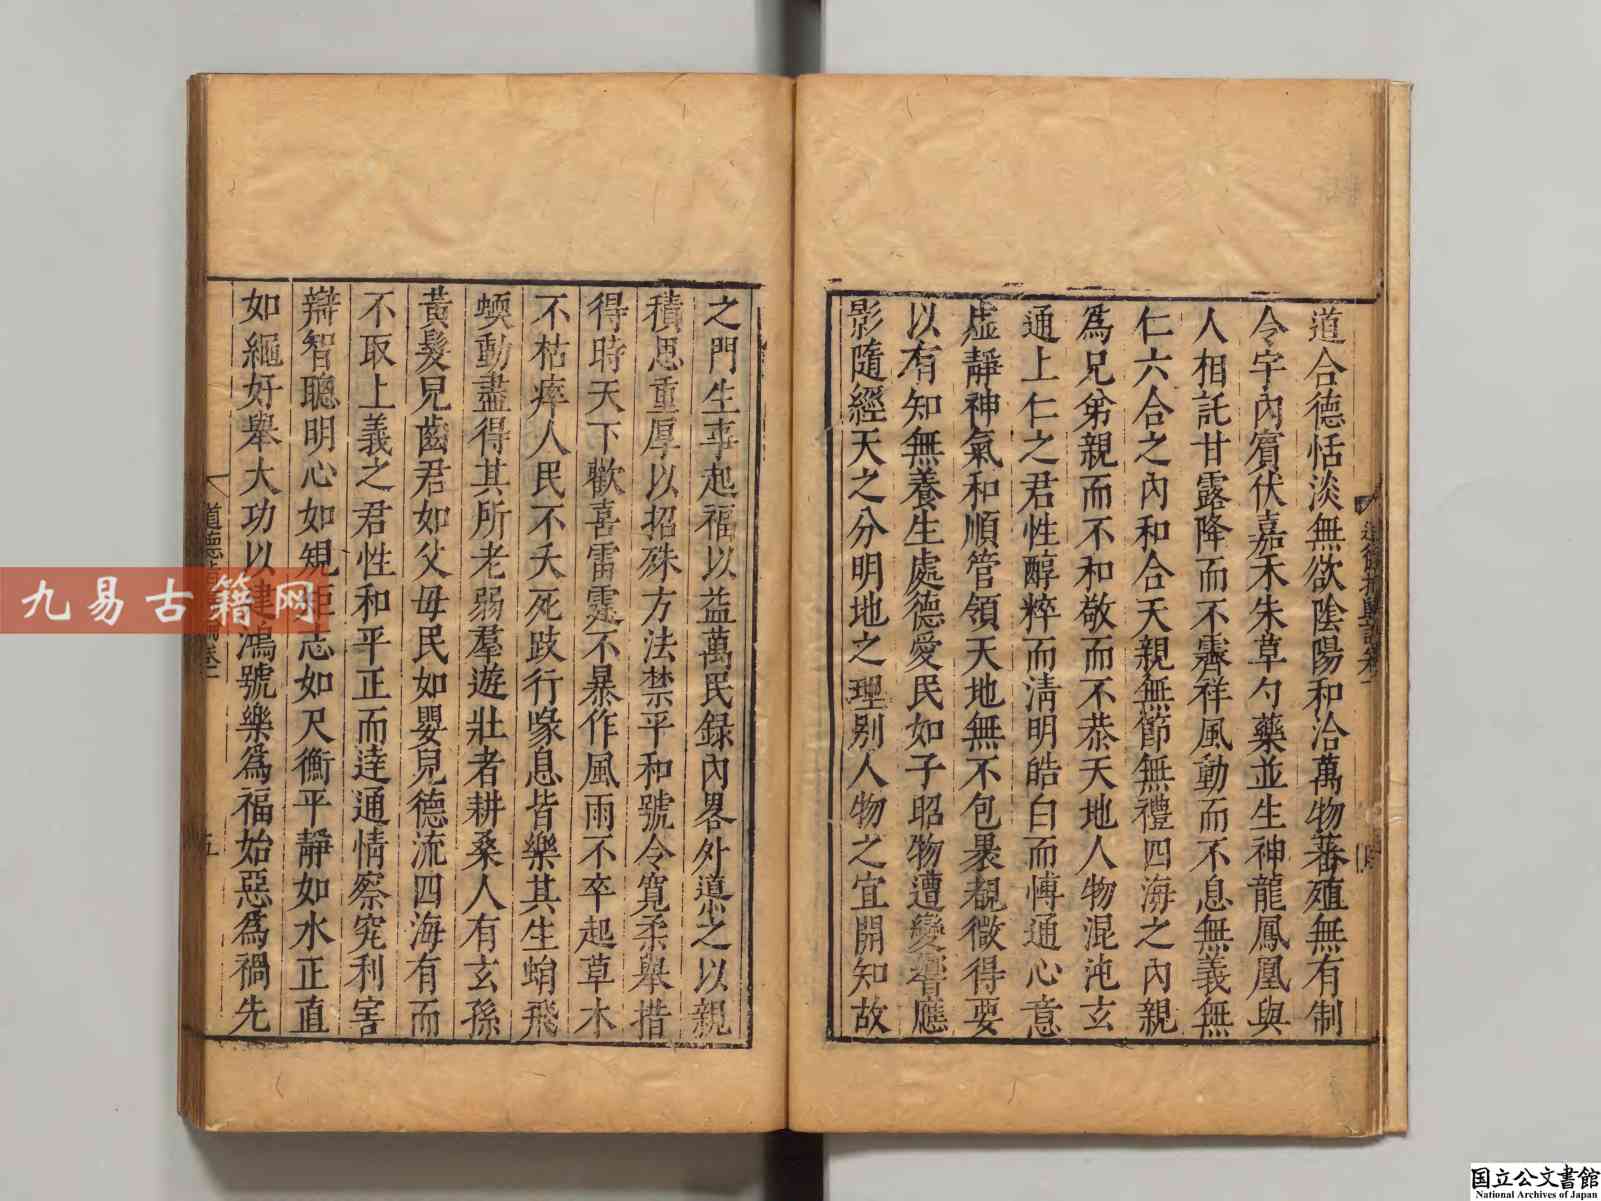 道合德恬淡無欲陰陽和洽萬物蕃殖無有制
令宇內賓伏嘉禾朱草勺藥並生神龍鳳凰與
人相託甘露降而不霽祥風動而不息無義無
仁六合之內和合天親無節無禮四海之內親
爲兄弟親而不和敬而不恭天地人物混沌玄
通上仁之君性醇粹而清明皓白而博通心意
虛靜神氣和順管領天地無不包裹覩微得要
以有知無養生處德愛民如子昭物遭變響應
影隨經天之分明地之理別人物之宜開知故
之門生事起福以益萬民錄內畧外導之以親
積思重厚以招殊方法禁平和號令寬柔舉措
得時天下歡喜雷霆不暴作風雨不卒起草木
不枯瘁人民不夭死跂行喙息皆樂其生蛸飛
蝡動盡得其所老弱羣遊壯者耕桑人有玄孫
黃髮兒齒君如父母民如嬰兒德流四海有而
不取上義之君性和平正而達通情察究利害
辯智聰明心如規矩志如尺衡平靜如水正直
如繩好舉大功以建鴻號樂爲福始惡爲禍先
五
九易古籍网
国立公文書館
National Archives of Japan